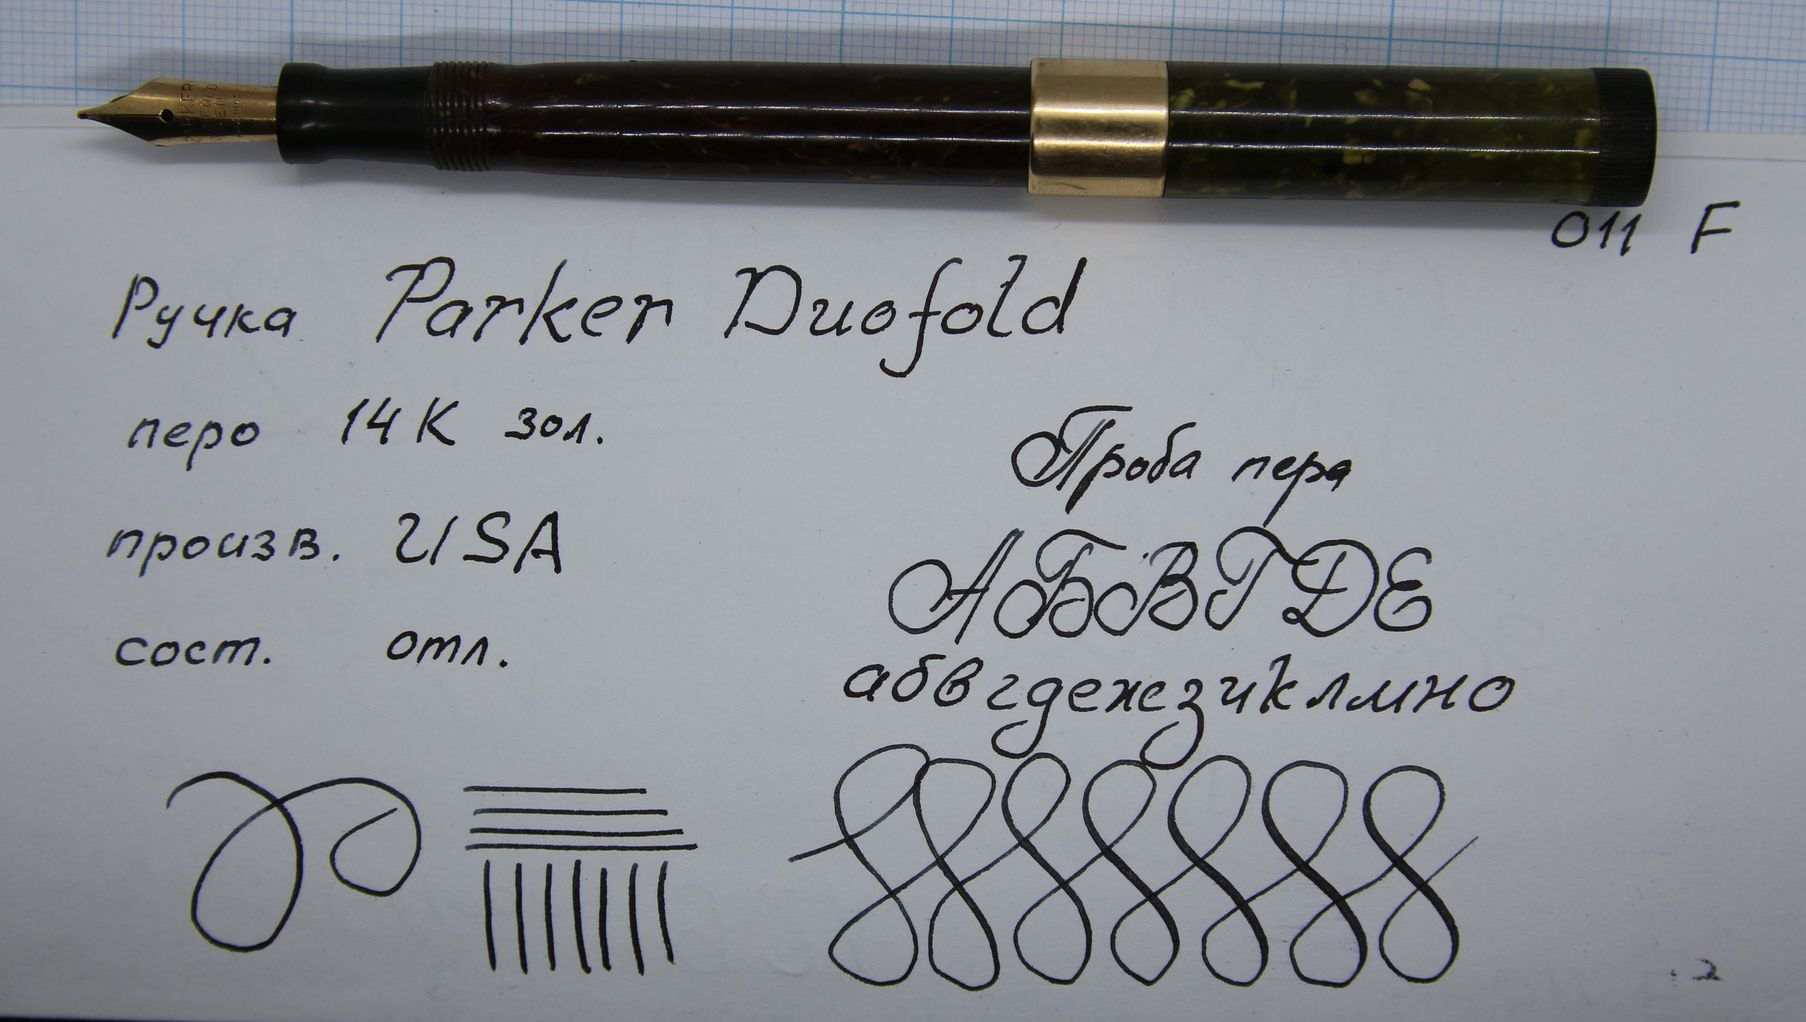 011 F
Ручка Parker Duofold
перо 14К зол.
Проба пера
произв. USA
АБВГДЕ
сост. отл.
абвгдежзиклмно